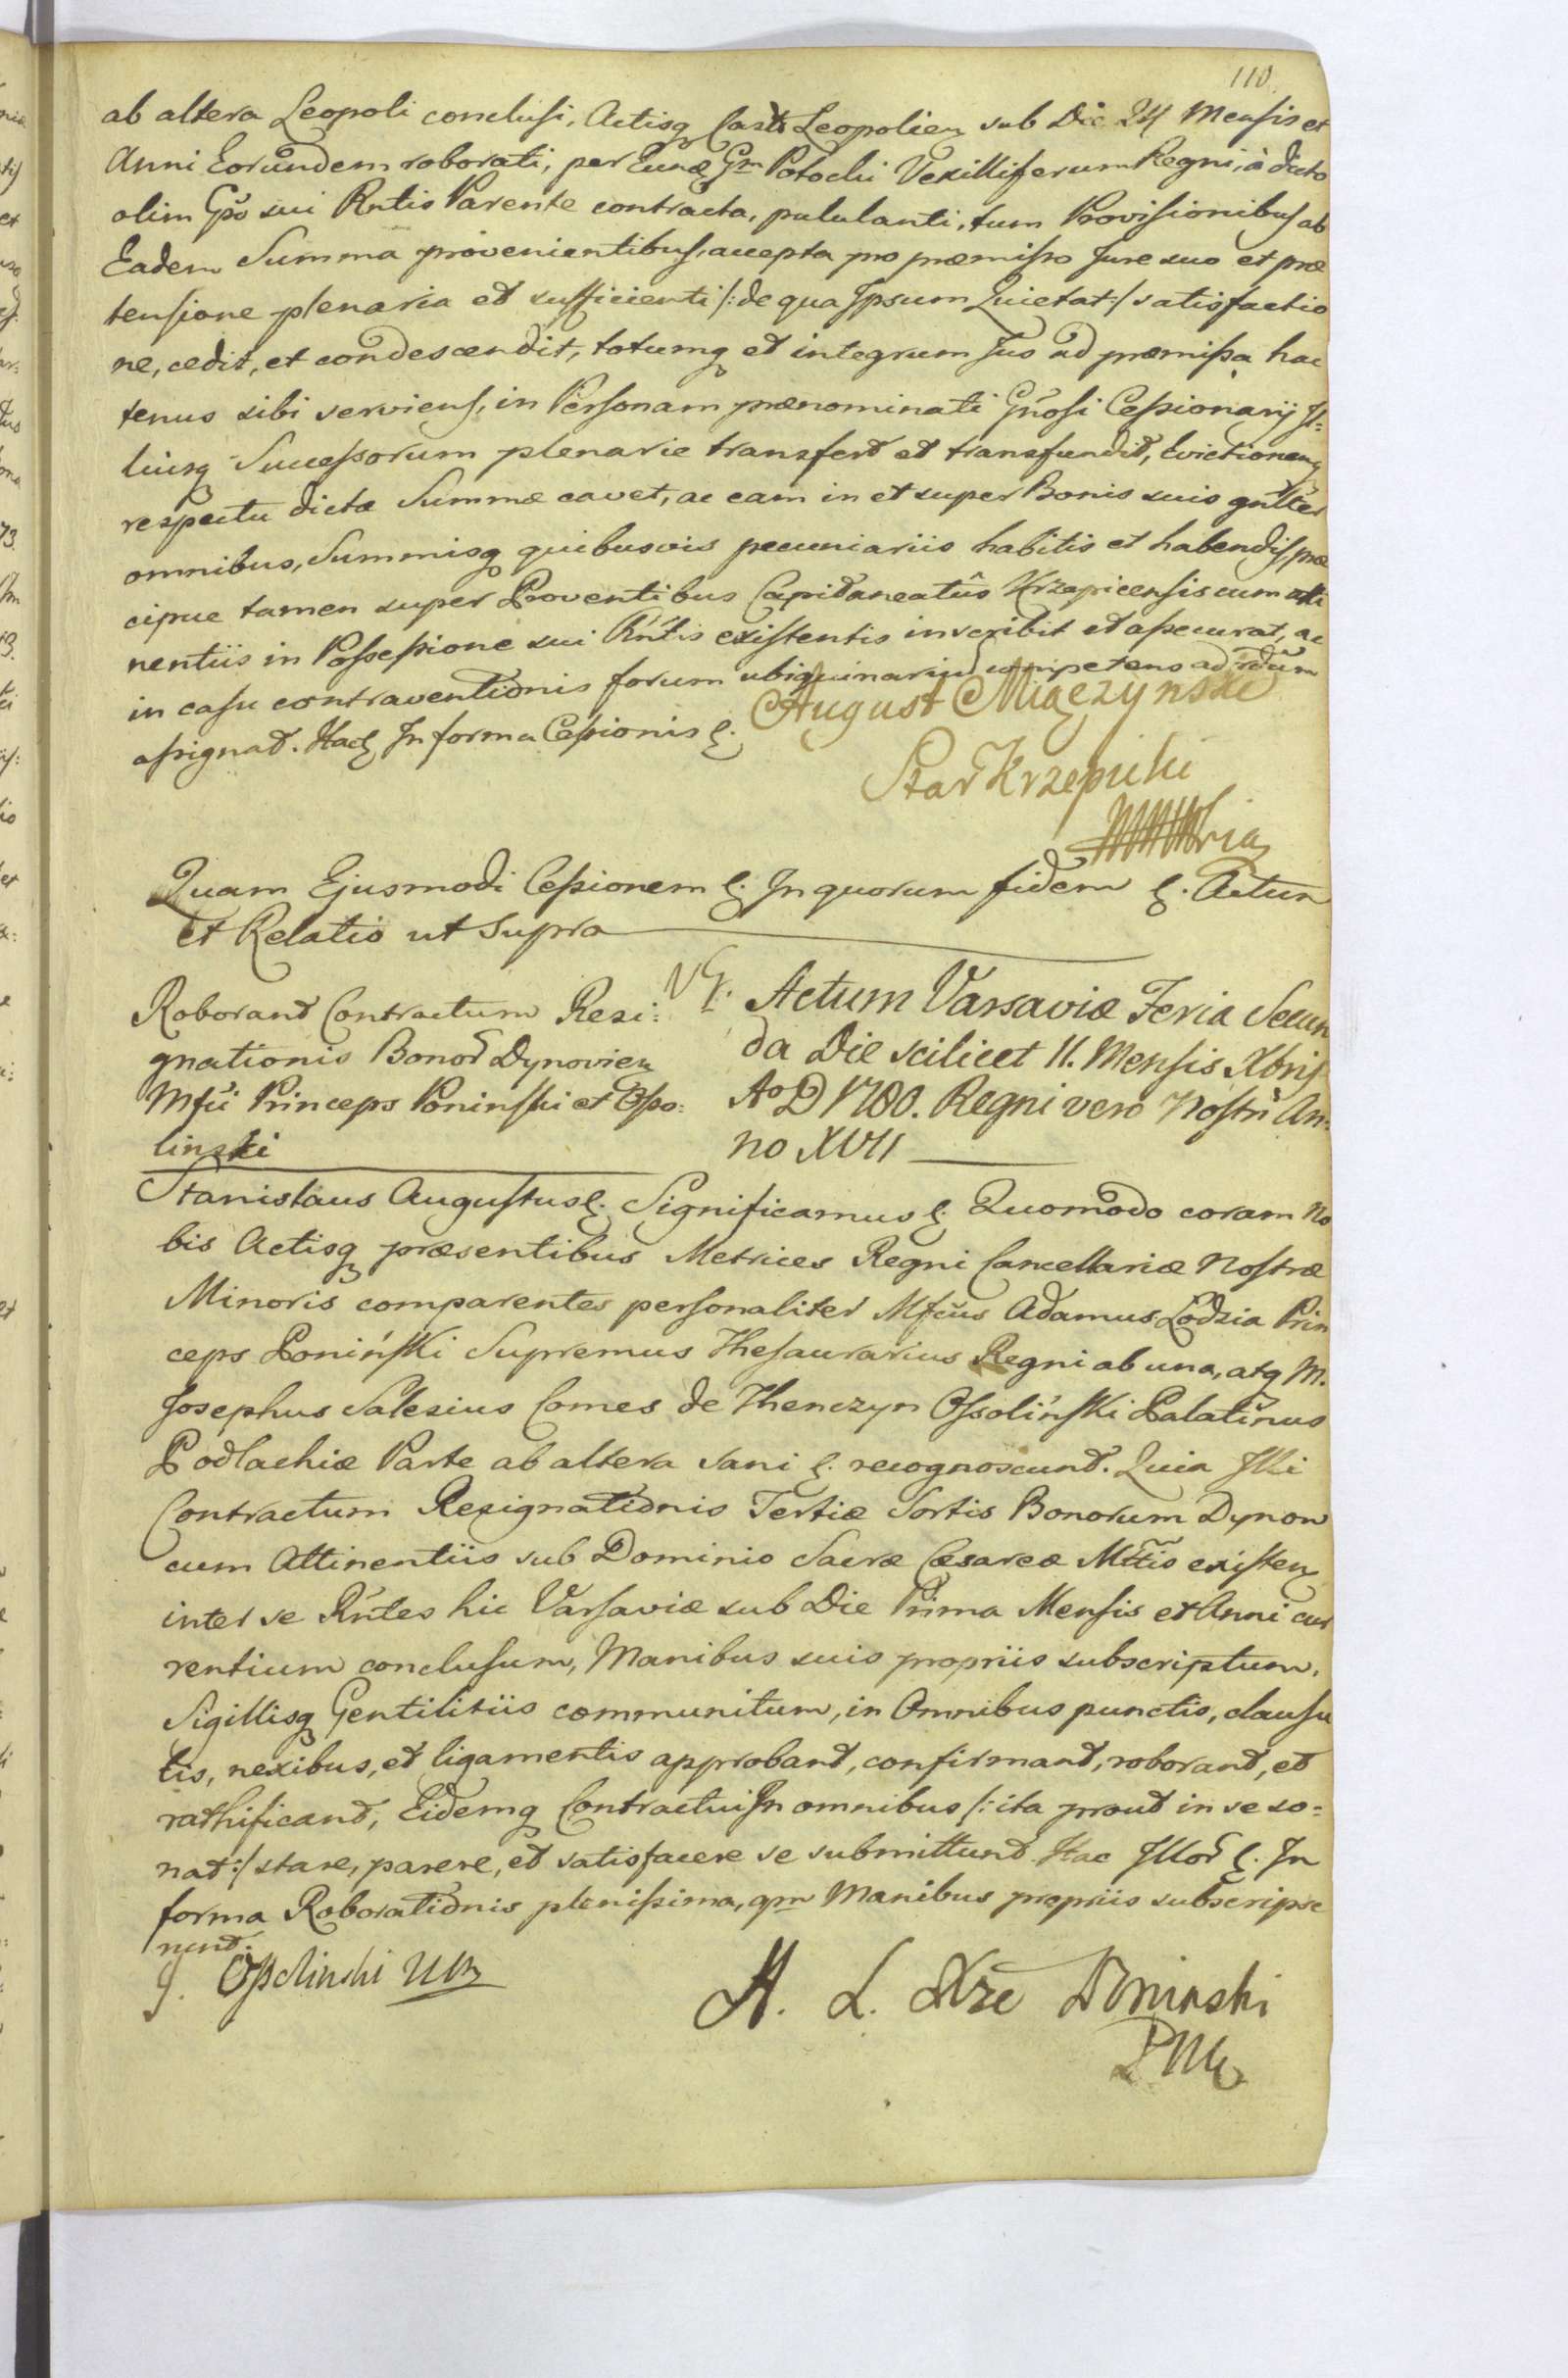 110.
ab altera Leopoli conclusi, Actisq Castr Leopolien sub Die 24 Mensis et
Anni Eorundem roborati, per Eund Gm Potocki Vexilliferum Regni, à dicto
olim Gso sui Rntis Parente contracta, pululanti, tum Provisionibus ab
Eadem Summa provenientibus, accepta pro præmisso Jure suo et præ
tensione plenaria et sufficienti /: de qua Ipsum Quietat :/ satisfactio
ne, cedit, et condescendit, totumq et integrum Jus ad præmissa hac
tenus sibi serviens, in Personam prænominati Gnosi Cessionarij Il=
liusq Successorum plenarie transfert et transfundit, Evictionemq
respectu dictæ Summæ cavet, ac eam in et super Bonis suis gnlter
omnibus, Summisq quibusvis pecuniariis habitis et habendis præ
cipue tamen super Proventibus Capitaneatûs Krzepicensis cum atti
nentiis in Possessione sui Rntis existentis inscribit et assecurat, ac
in casu contraventionis forum ubiquinarium competens ad rdum
assignat. Hacq In forma Cessionis &.
August Miączynski
Star Krzepicki
Quam Ejusmodi Cessionem &. In quorum fidem &. Actum
et Relatio ut supra
Roborant Contractum Resi:
gnationis Bonor Dynovien
Mfci Princeps Poninski et Osso:
linski
Actum Varsaviæ Feria Secun
da Die scilicet 11. Mensis Xbris
Ao D 1780. Regni vero Nostri An:
no XVII
Stanislaus Augustus &. Significamus &. Quomodo coram No
bis Actisq præsentibus Metrices Regni Cancellariæ Nostræ
Minoris comparentes personaliter Mfcus Adamus Lodzia Prin
ceps Poniński Supremus Thesaurarius Regni ab una, atq M.
Josephus Salesius Comes de Thenczyn Ossoliński Palatinus
Podlachiæ Parte ab altera sani &. recognoscunt. Quia Illi
Contractum Resignationis Tertiæ Sortis Bonorum Dynow
cum Attinentiis sub Dominio Sacræ Cæsareæ Mttis existen
inter se Rntes hic Varsaviæ sub Die Prima Mensis et Anni cur
rentium conclusum, Manibus suis propriis subscriptum,
Sigillisq Gentilitiis communitum, in Omnibus punctis, clausu
lis, nexibus, et ligamentis approbant, confirmant, roborant, et
rathificant, Eidemq Contractui In omnibus /: ita prout in se so=
nat :/ stare, parere, et satisfacere se submittunt Hac Illor &. In
forma Roborationis plenissima, qm Manibus propriis subscripse
runt.
J. Ossolinski
A. L. Xze Poninski